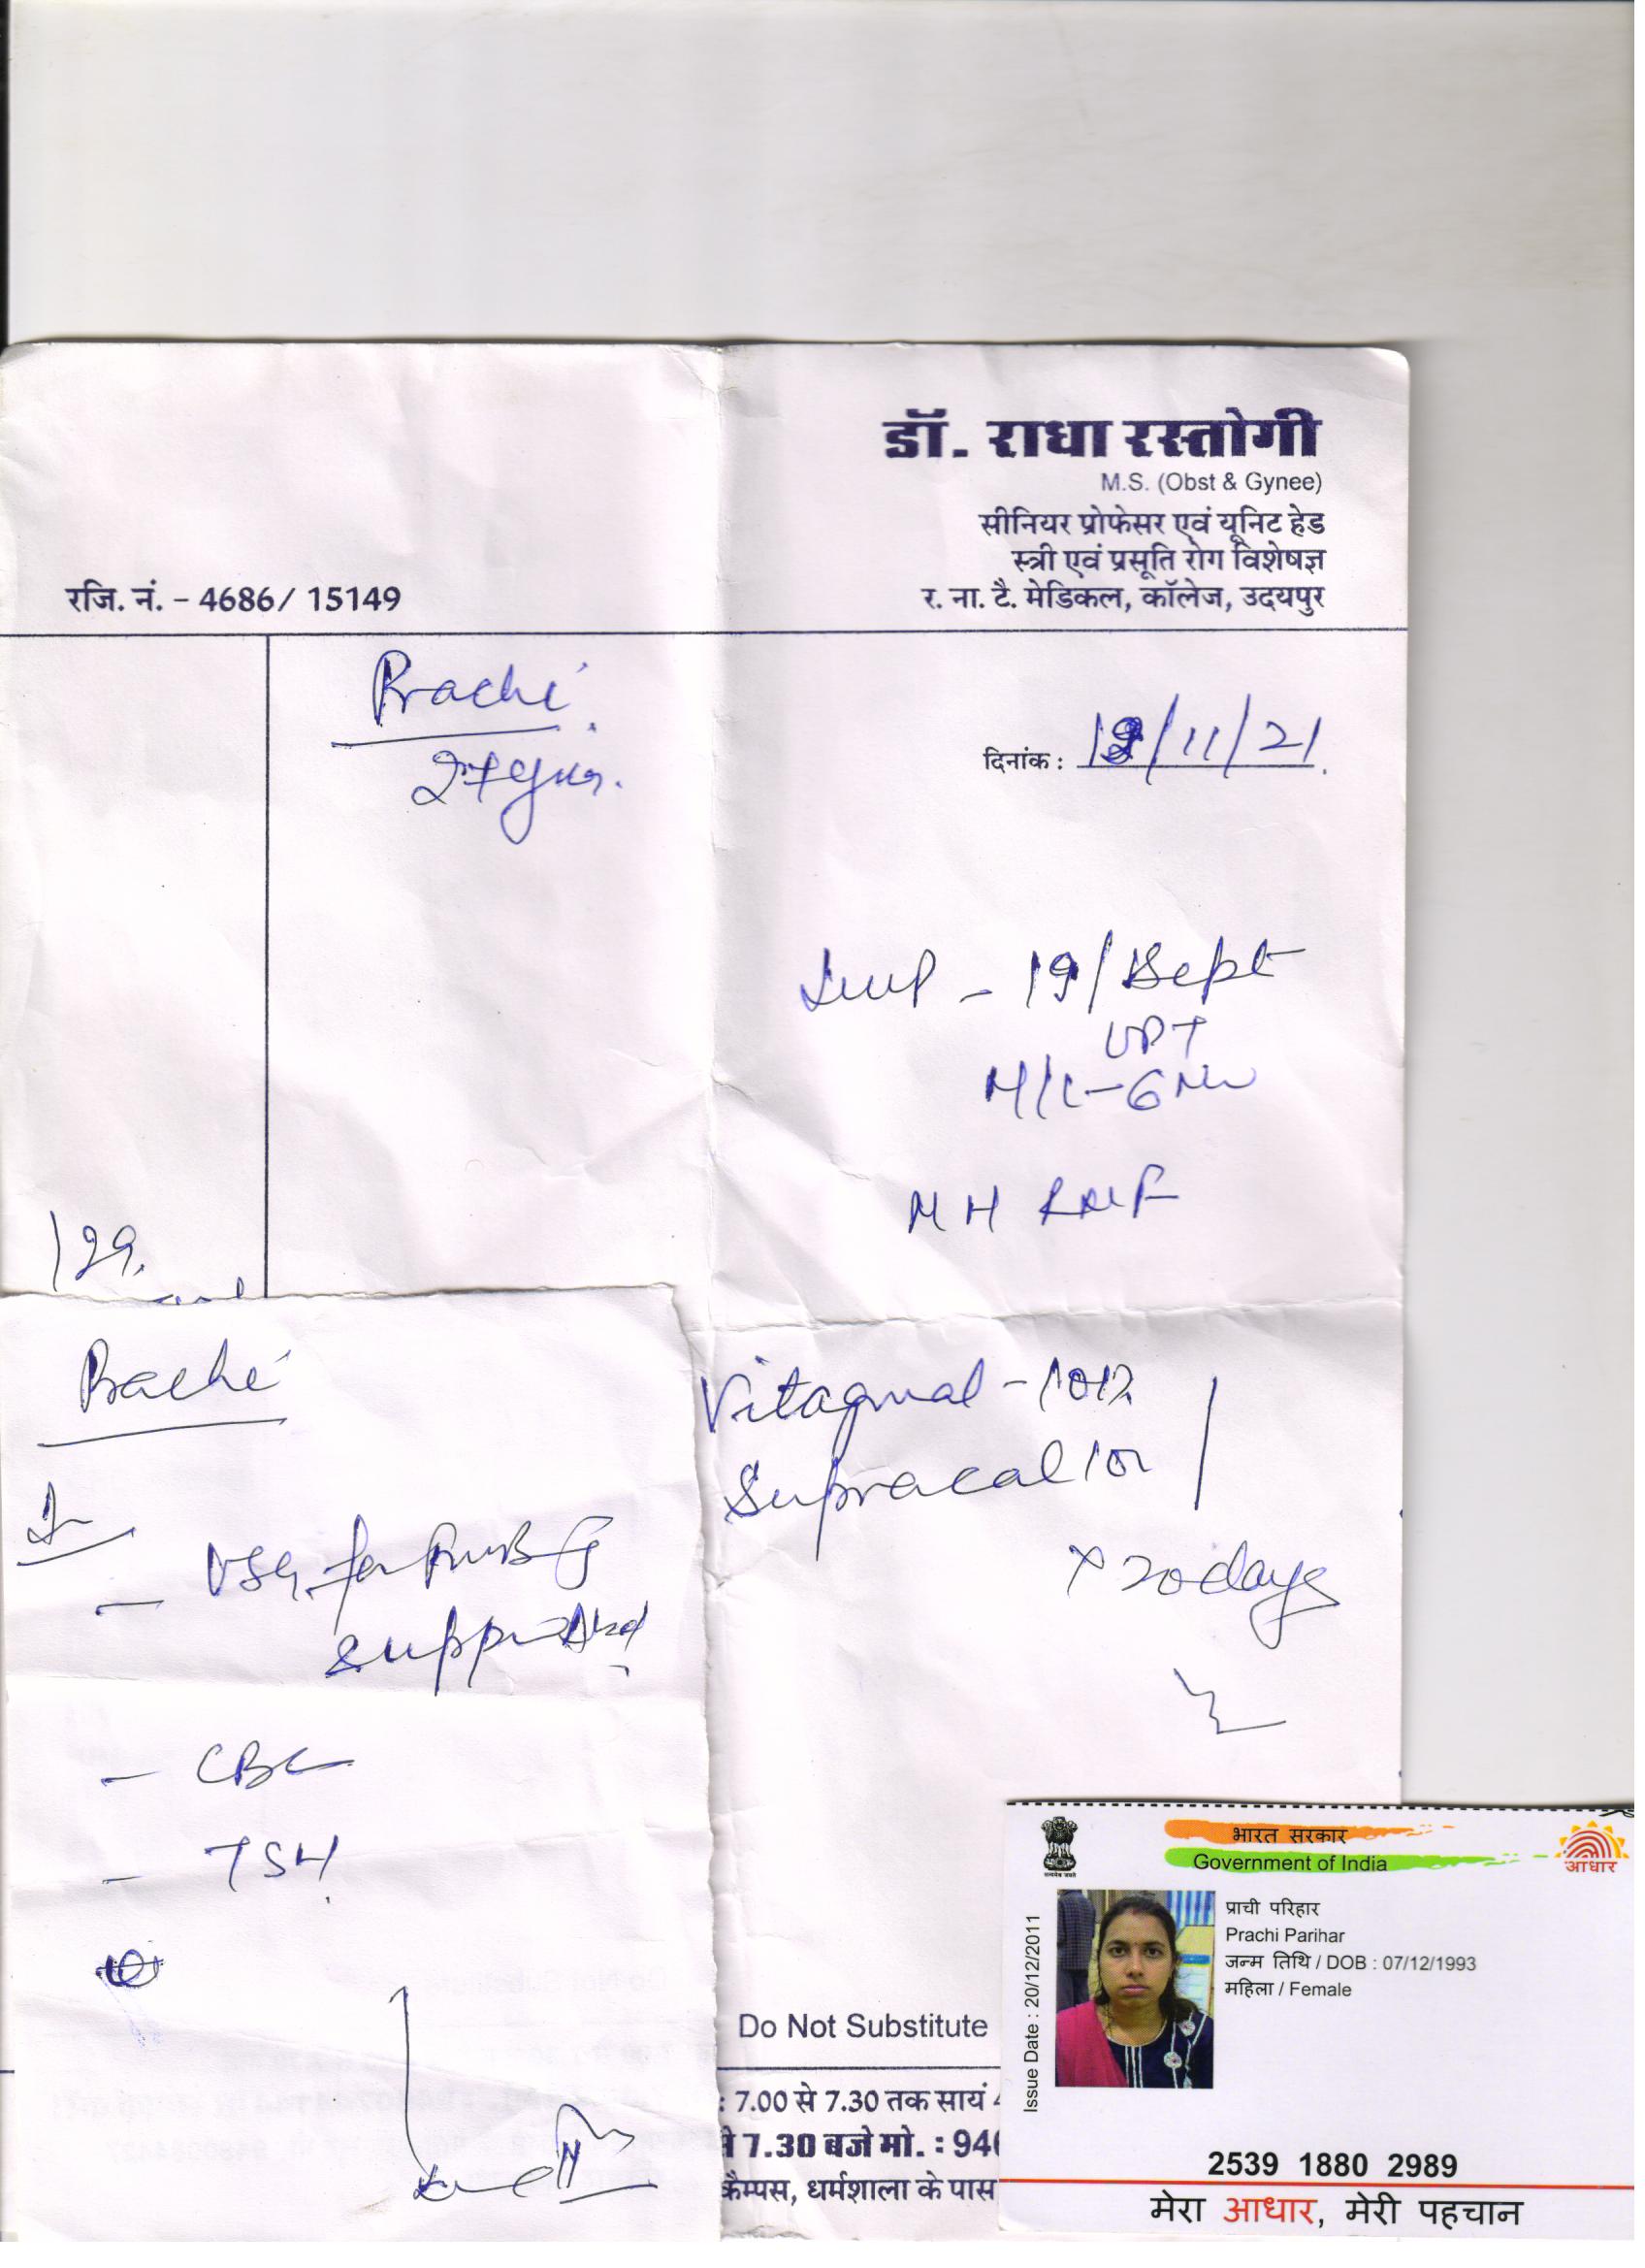 डॉ. राधा रस्तोगी
M.S. (Obst & Gynee)
सीनियर प्रोफेसर एवं यूनिट हेड
स्त्री एवं प्रसूति रोग विशेषज्ञ
र. ना. टै. मेडिकल, कॉलेज, उदयपुर
रजि. नं. - 4686/ 15149
Prachi
27 yrs.
दिनांक : /11/21
LMP - 19/Sept
UPT
M/L - 6
M H
129.
Prachi
USG for
CBC
TSH
Vitagmal - 
Supracal
x 20 days
Do Not Substitute
: 7.00 से 7.30 तक सायं
7.30 बजे मो. : 94
कैम्पस, धर्मशाला के पास
भारत सरकार
Government of India
आधार
Issue Date : 20/12/2011
प्राची परिहार
Prachi Parihar
जन्म तिथि / DOB : 07/12/1993
महिला / Female
2539 1880 2989
मेरा आधार, मेरी पहचान